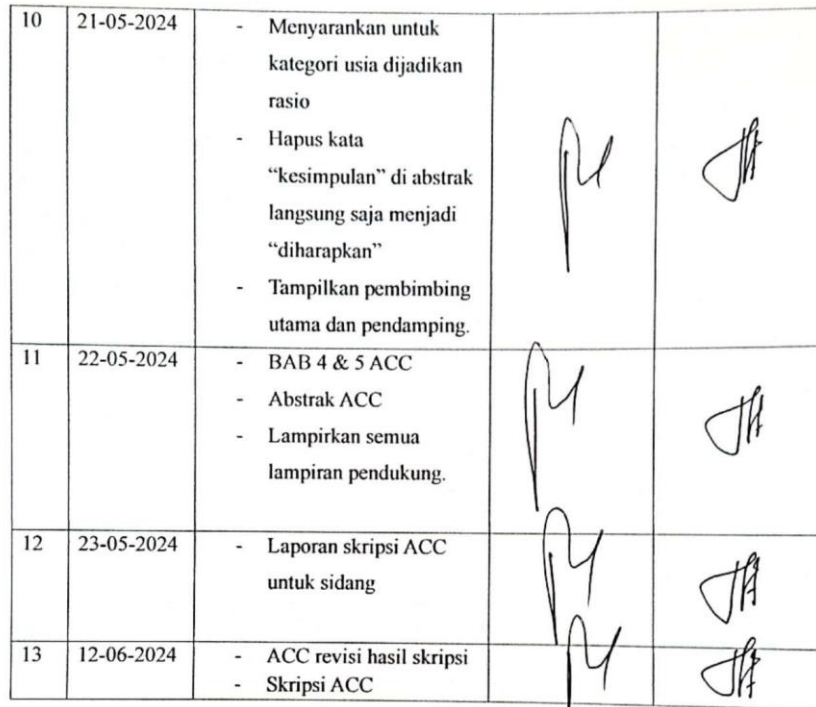 10 21-05-2024 - Menyarankan untuk
kategori usia dijadikan
rasio
- Hapus kata
“kesimpulan” di abstrak
langsung saja menjadi
“diharapkan”
- Tampilkan pembimbing
utama dan pendamping.
11 22-05-2024 - BAB 4 & 5 ACC
- Abstrak ACC
- Lampirkan semua
lampiran pendukung.
12 23-05-2024 - Laporan skripsi ACC
untuk sidang
13 12-06-2024 - ACC revisi hasil skripsi
- Skripsi ACC